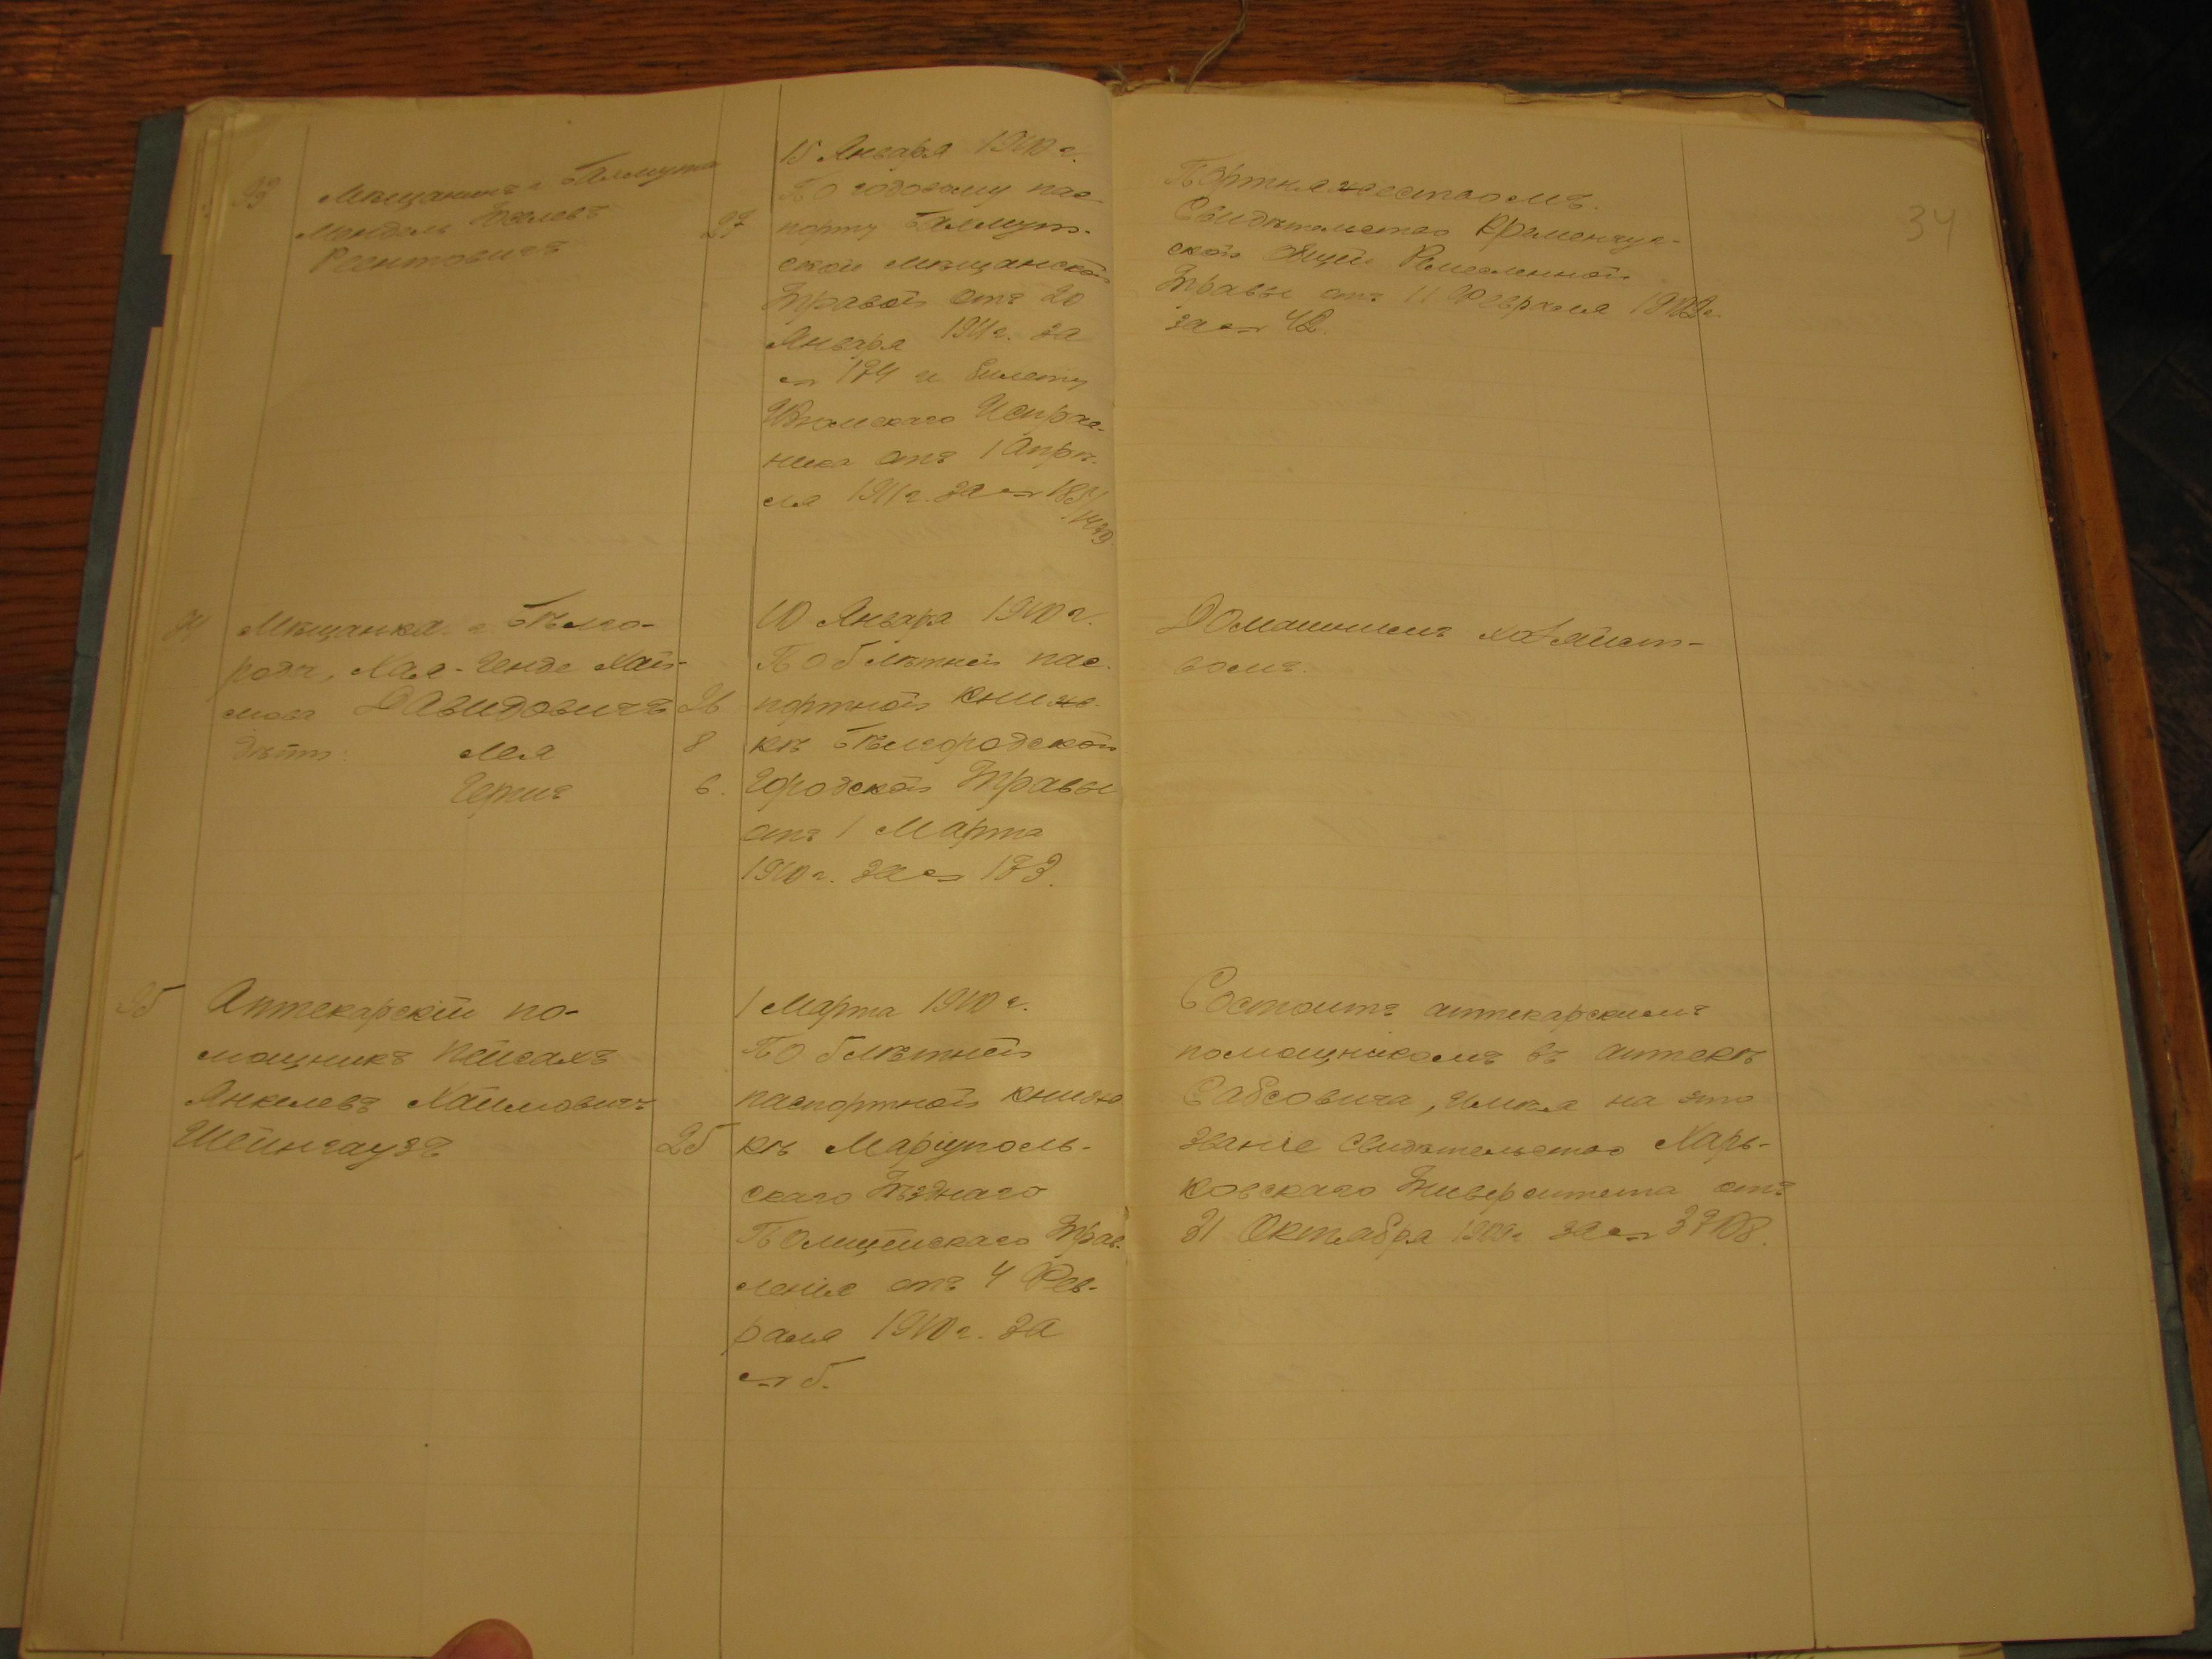 34
Мѣщанинъ г.
Мендель
27
15 Января 1910 г.
По годовому пас-
порту
ской мѣщанской
Управы отъ 20
Января 1911 г. за
№ 174 и билету
Изюмскаго Исправ-
ника отъ 1 Апрѣ-
ля 1911 г. за №
Портняжествомъ.
Свидѣтельство Кременчуг-
ской Общей Ремесленной
Управы отъ 11 Февраля
за № 42.
Мѣщанка г. Бѣлго-
рода, Хая-Генде Хаи-
мова Давидовичъ 26
дѣти: Лея 8
6.
10 Января 1910 г.
По 5 лѣтней пас-
портной книж-
кѣ Бѣлгородской
Городской Управы
отъ 1 Марта
1910 г. за № 173.
Домашнимъ хозяйст-
вомъ.
Аптекарскій по-
мощникъ Пейсахъ
Янкелевъ Хаимовичъ
Шейнгаузъ 25
1 Марта 1910 г.
По 5 лѣтней
паспортной книж-
кѣ Маріуполь-
скаго Уѣзднаго
Полицейскаго Упра-
вленія отъ 4 Фев-
раля 1910 г. за
№ 5.
Состоитъ аптекарскимъ
помощникомъ въ аптекѣ
Сабсовича, имѣя на это
званіе свидѣтельство Харь-
ковскаго Университета отъ
31 Октября 1909 г. за № 3708.